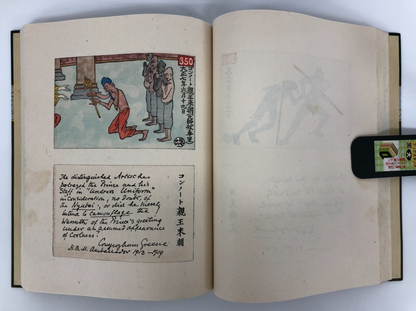 350
コンノート親王来朝
大正七年六月十九日
The distinguished Artist has
portrayed the Prince and his
Staff in "Undress Uniform"
in consideration, no doubt, of
the Nyubai; or did he merely
intend to camouflage the
warmth of the Prince's greeting
under an assumed appearance
of Coolness.
Conyngham Greene
H.B.M. Ambassador 1912–1919
コンノート親王来朝